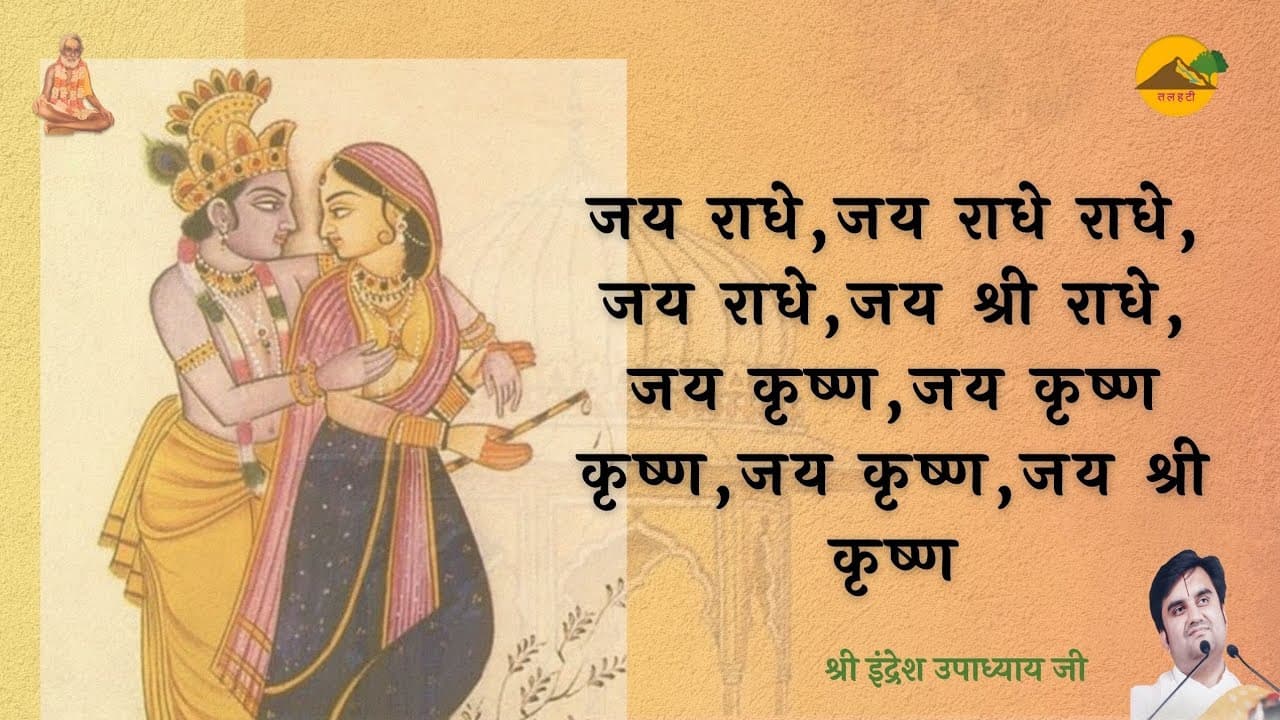 तलहटी
जय राधे,जय राधे राधे,
जय राधे,जय श्री राधे,
जय कृष्ण,जय कृष्ण
कृष्ण,जय कृष्ण,जय श्री
कृष्ण
श्री इंद्रेश उपाध्याय जी